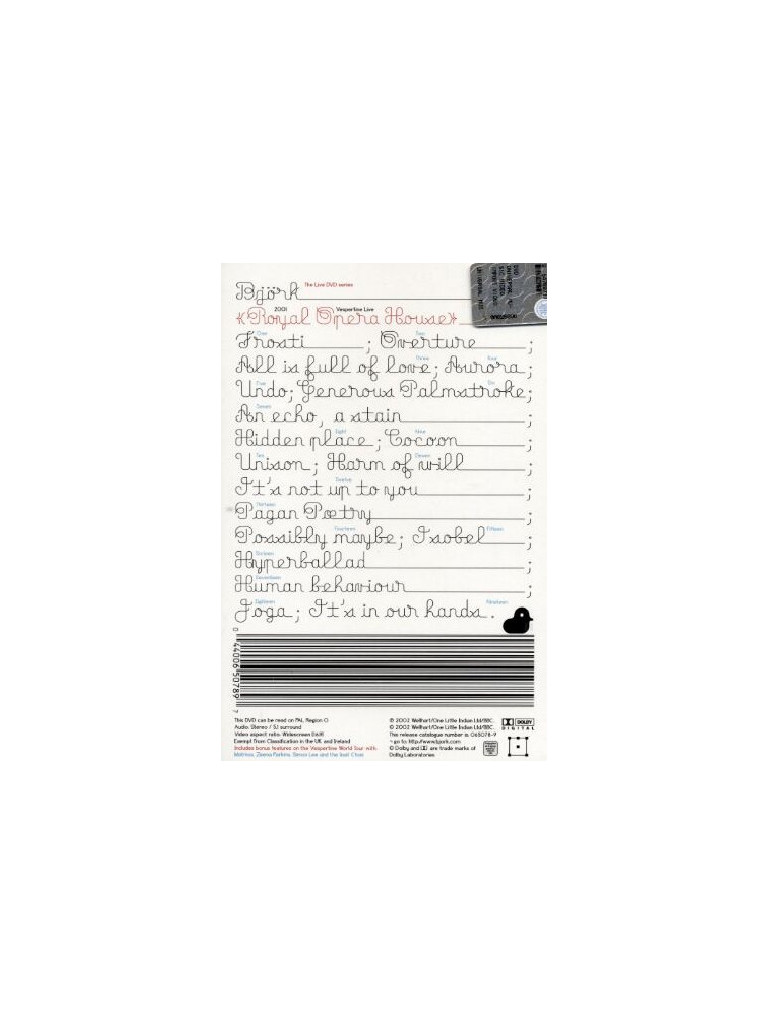 Björk The Live DVD series
2001 Vespertine Live
Royal Opera House
One Two
Frosti ; Overture ;
Three Four
All is full of love; Aurora ;
Five Six
Undo; Generous Palmstroke;
Seven
An echo, a stain ;
Eight Nine
Hidden place ; Cocoon ;
Ten Eleven
Unison ; Harm of will ;
Twelve
It's not up to you ;
Thirteen
Pagan Poetry ;
Fourteen Fifteen
Possibly maybe; Isobel ;
Sixteen
Hyperballad ;
Seventeen
Human behaviour ;
Eighteen Nineteen
Joga ; It's in our hands .
0 44006 50789 7
This DVD can be read on PAL, Region-0
Audio: Stereo / 5.1 surround
Video aspect ratio: Widescreen
Exempt from Classification in the UK and Ireland
Includes bonus features on the Vespertine World Tour with
Matmos, Zeena Parkins, Simon Lee and the Inuit Choir
© 2002 Wellhart/One Little Indian Ltd/BBC.
© 2002 Wellhart/One Little Indian Ltd/BBC.
This release catalogue number is: 065078-9
go to: http://www.bjork.com
© Dolby and are trade marks of
Dolby Laboratories
DOLBY
DIGITAL